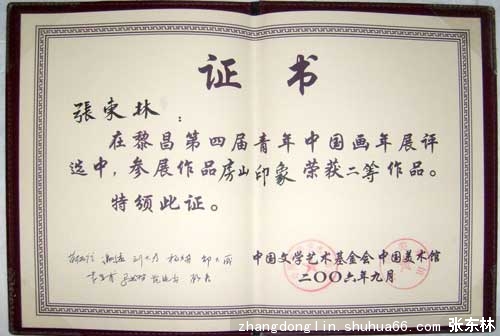 证书
張東林：
在黎昌第四届青年中国画年展评
选中，参展作品房山印象荣获二等作品。
特颁此证。
中国文学艺术基金会 中国美术馆
二〇〇六年九月
zhangdonglin.shuhua66.com 张东林